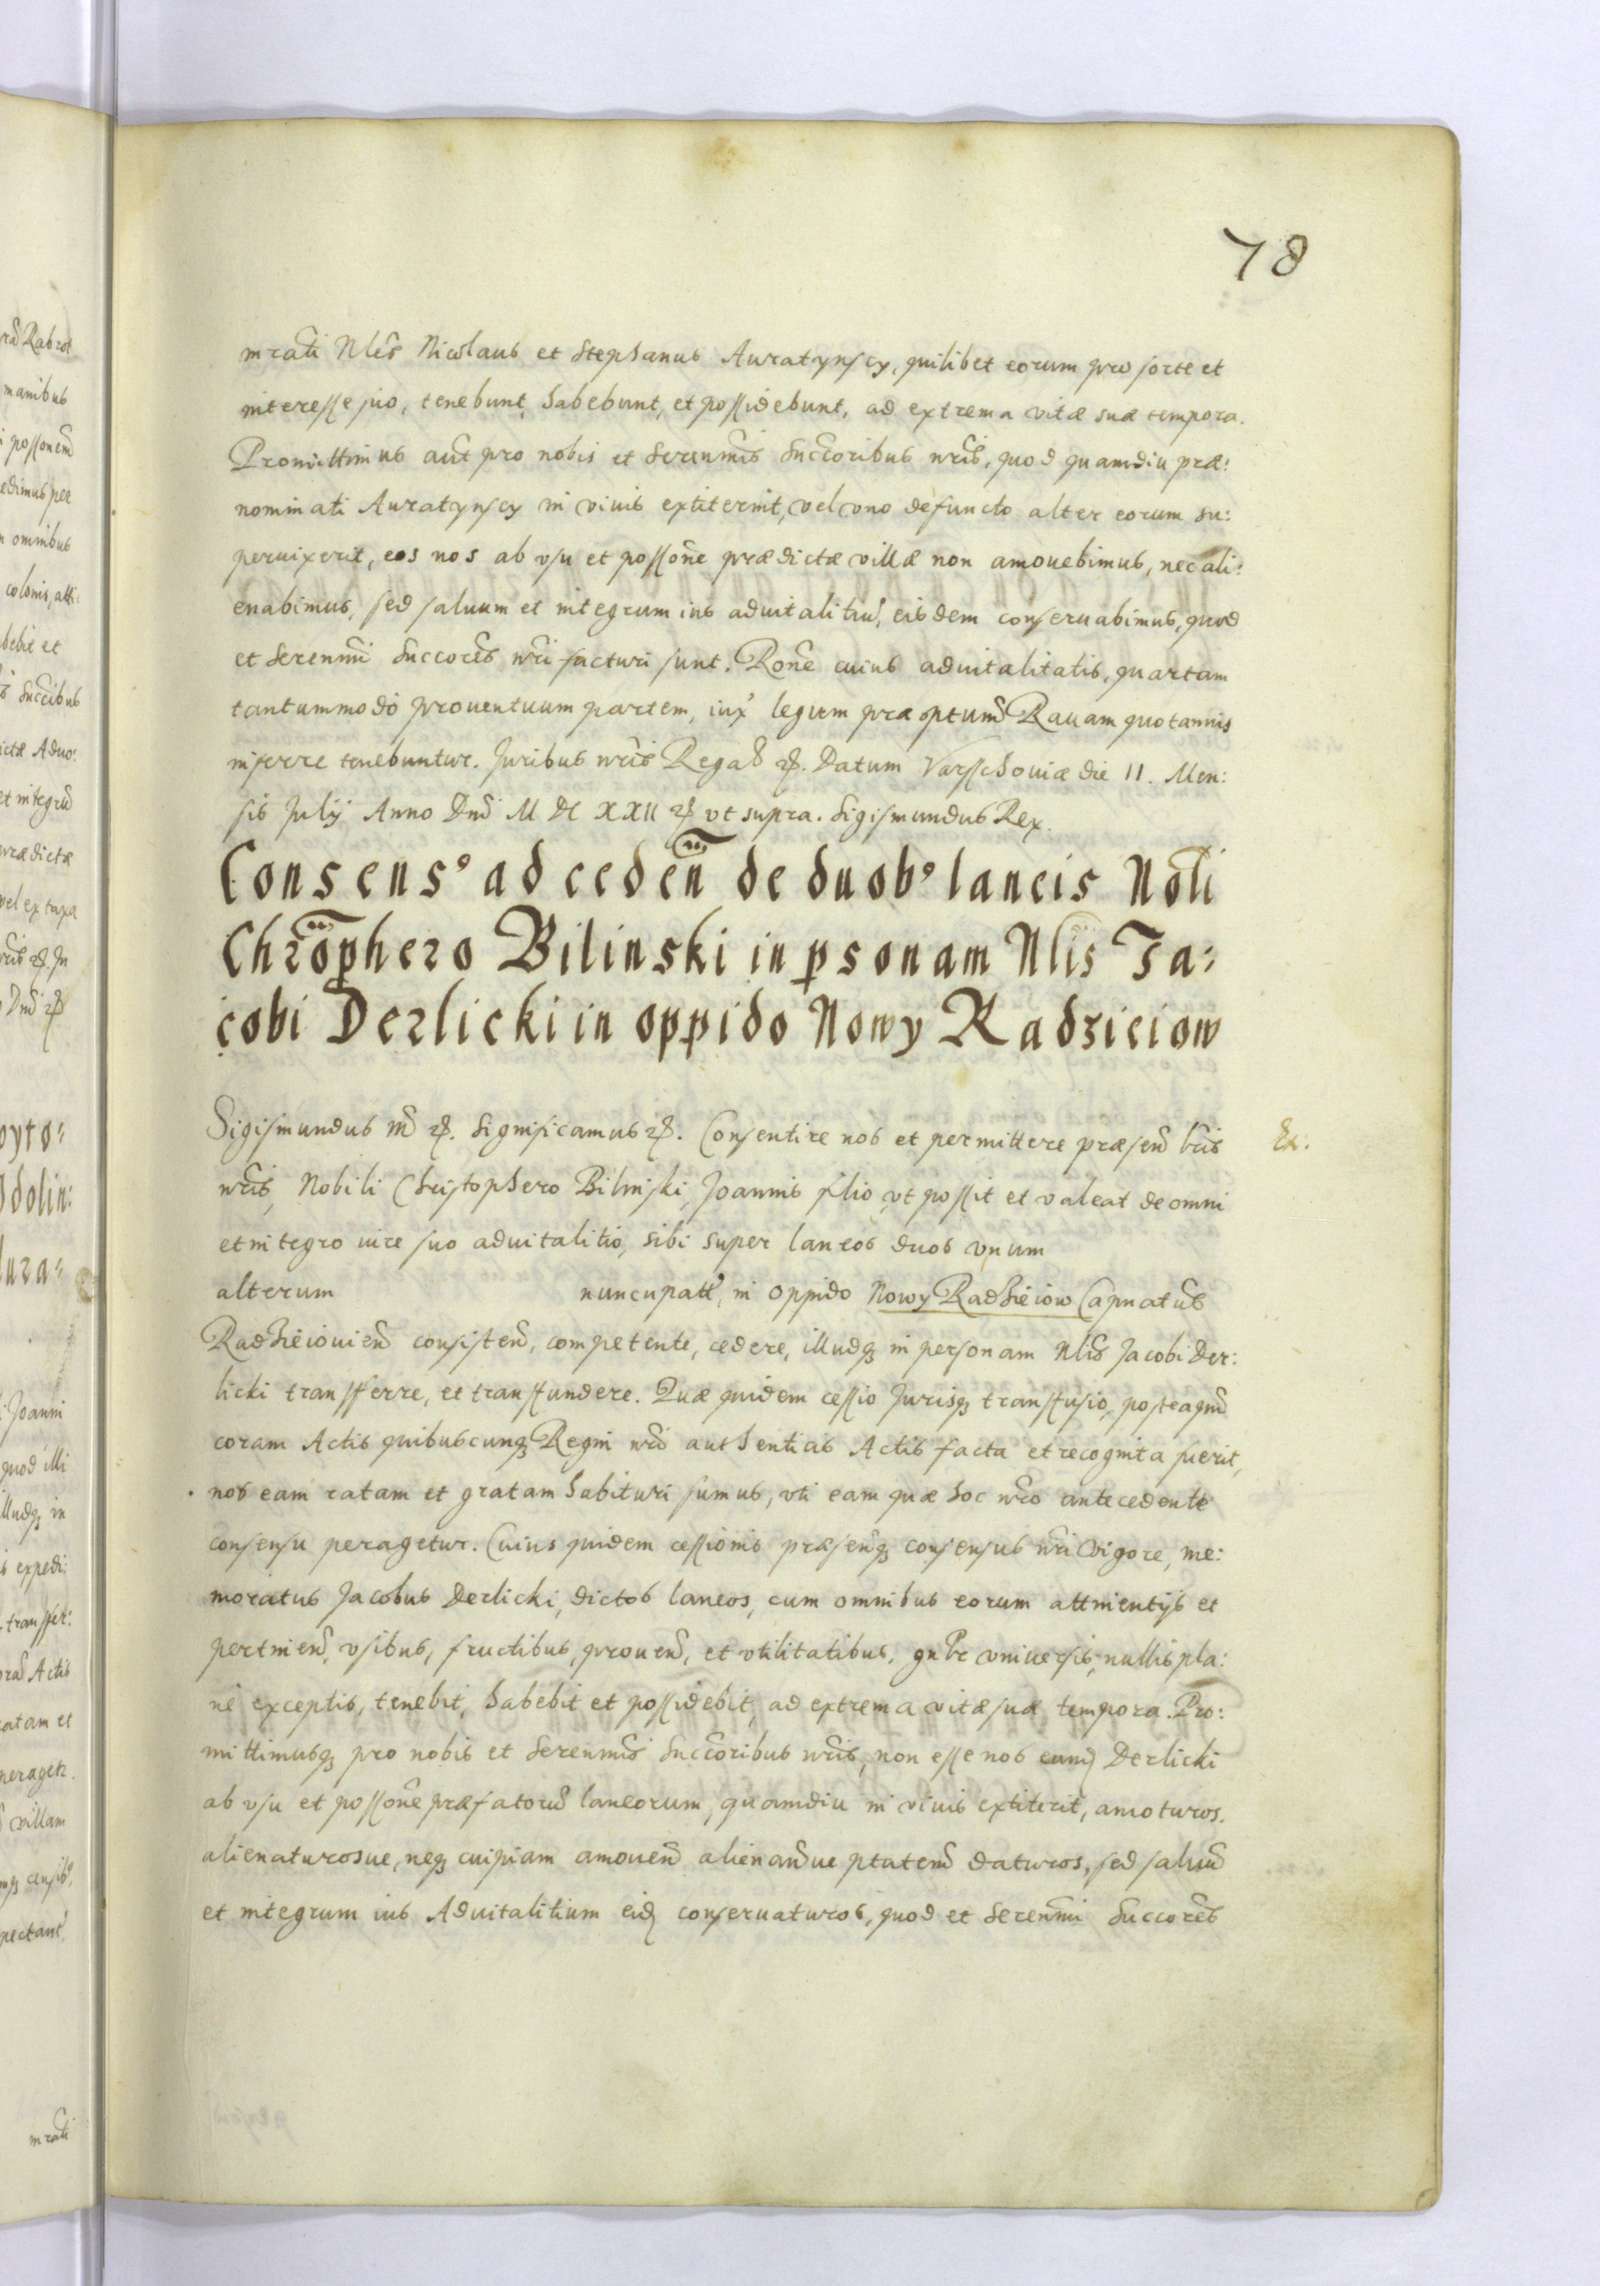 78
mrati Nles Nicolaus et Stephanus Auratynscy, quilibet eorum pro sorte et
interesse suo, tenebunt, habebunt, et possidebunt, ad extrema vitæ suæ tempora.
Promittimus aut pro nobis et Serenmis Succoribus nris, quod quamdiu præ:
nominati Auratynscy in viuis extiterint, vel vno defuncto alter eorum su:
peruixerit, eos nos ab vsu et possone prædictæ villæ non amouebimus, nec ali:
enabimus, sed saluum et integrum ius aduitalitiu, eisdem conseruabimus, quod
et Serenmi Succores nri facturi sunt. Rone cuius aduitalitatis, quartam
tantummodò prouentuum partem, iux legum præsptum Rauam quotannis
inferre tenebuntur. Juribus nris Regal etc. Datum Varsschouiæ die 11. Men:
sis Julij Anno Dni M DC XXII etc vt supra. Sigismundus Rex.
Consens9 ad ceden de duob9 laneis Noli
Chrophero Bilinski in psonam Nlis Ja:
cobi Derlicki in oppido Nowy Radzieiow
Sigismundus III etc. Significamus etc. Consentire nos et permittere præsen lris
Ex.
nris, Nobili Christophero Bilinski, Joannis filio, vt possit et valeat de omni
et integro iure suo aduitalitio, sibi super laneos duos vnum
alterum nuncupat, in oppido Nowy Radzieiow Capnatus
Radzieiouien consisten, competente, cedere, illudq in personam Nlis Jacobi Der:
licki transferre, et transfundere. Quæ quidem cessio Jurisq transfusio, posteaqm
coram Actis quibuscunq Regni nri authenticis Actis facta et recognita fuerit,
nos eam ratam et gratam habituri sumus, vti eam quæ hoc nro antecedente
consensu peragetur. Cuius quidem cessionis præsenq consensus nri vigore, me:
moratus Jacobus Derlicki, dictos laneos, cum omnibus eorum attinentijs et
pertinen, vsibus, fructibus, prouen, et vtilitatibus, gnlr vniuersis, nullis pla:
nè exceptis, tenebit, habebit et possidebit, ad extrema vitæ suæ tempora. Pro:
mittimusq pro nobis et Serenmis Succoribus nris, non esse nos eund Derlicki
ab vsu et possone præfatoru laneorum, quamdiu in viuis extiterit, amoturos,
alienaturosue, neq cuipiam amouen alienandue ptatem daturos, sed saluu
et integrum ius Aduitalitium eid conseruaturos, quod et Serenmi Succores